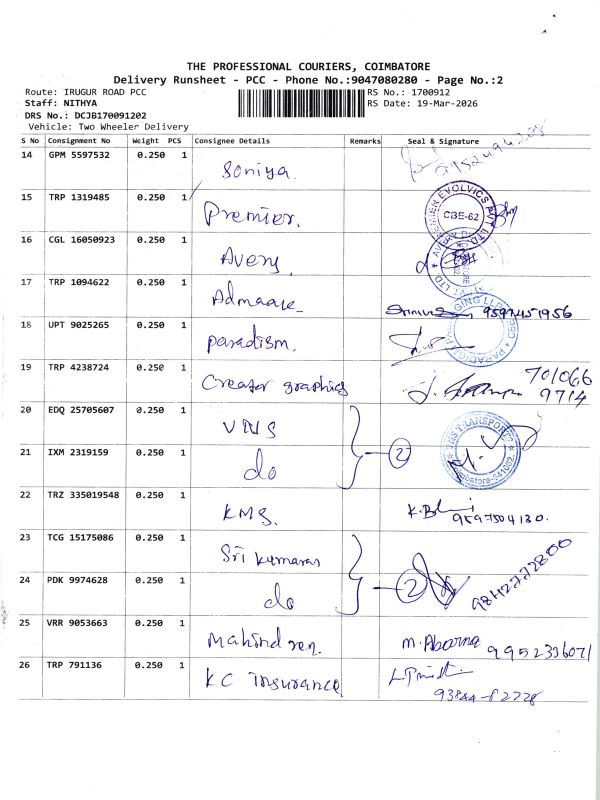 THE PROFESSIONAL COURIERS, COIMBATORE
Delivery Runsheet - PCC - Phone No.:9047080280 - Page No.:2
Route: IRUGUR ROAD PCC
RS No.: 1700912
Staff: NITHYA
RS Date: 19-Mar-2026
DRS No.: DCJB170091202
Vehicle: Two Wheeler Delivery
S No Consignment No Weight PCS Consignee Details Remarks Seal & Signature
14 GPM 5597532 0.250 1 Soniya.
15 TRP 1319485 0.250 1 Premier. CBE-62
16 CGL 16050923 0.250 1 Avery
17 TRP 1094622 0.250 1 9597451956
18 UPT 9025265 0.250 1 paradism.
19 TRP 4238724 0.250 1 Creator graphics 701066
9714
20 EDQ 25705607 0.250 1 VNS
21 IXM 2319159 0.250 1 do 2
22 TRZ 335019548 0.250 1 KMS. 9597504130.
23 TCG 15175086 0.250 1 Sri Kumaran
24 PDK 9974628 0.250 1 do 2 9842772800
25 VRR 9053663 0.250 1 M. Abarna 9952336071
26 TRP 791136 0.250 1 KC insurance
93844-82728